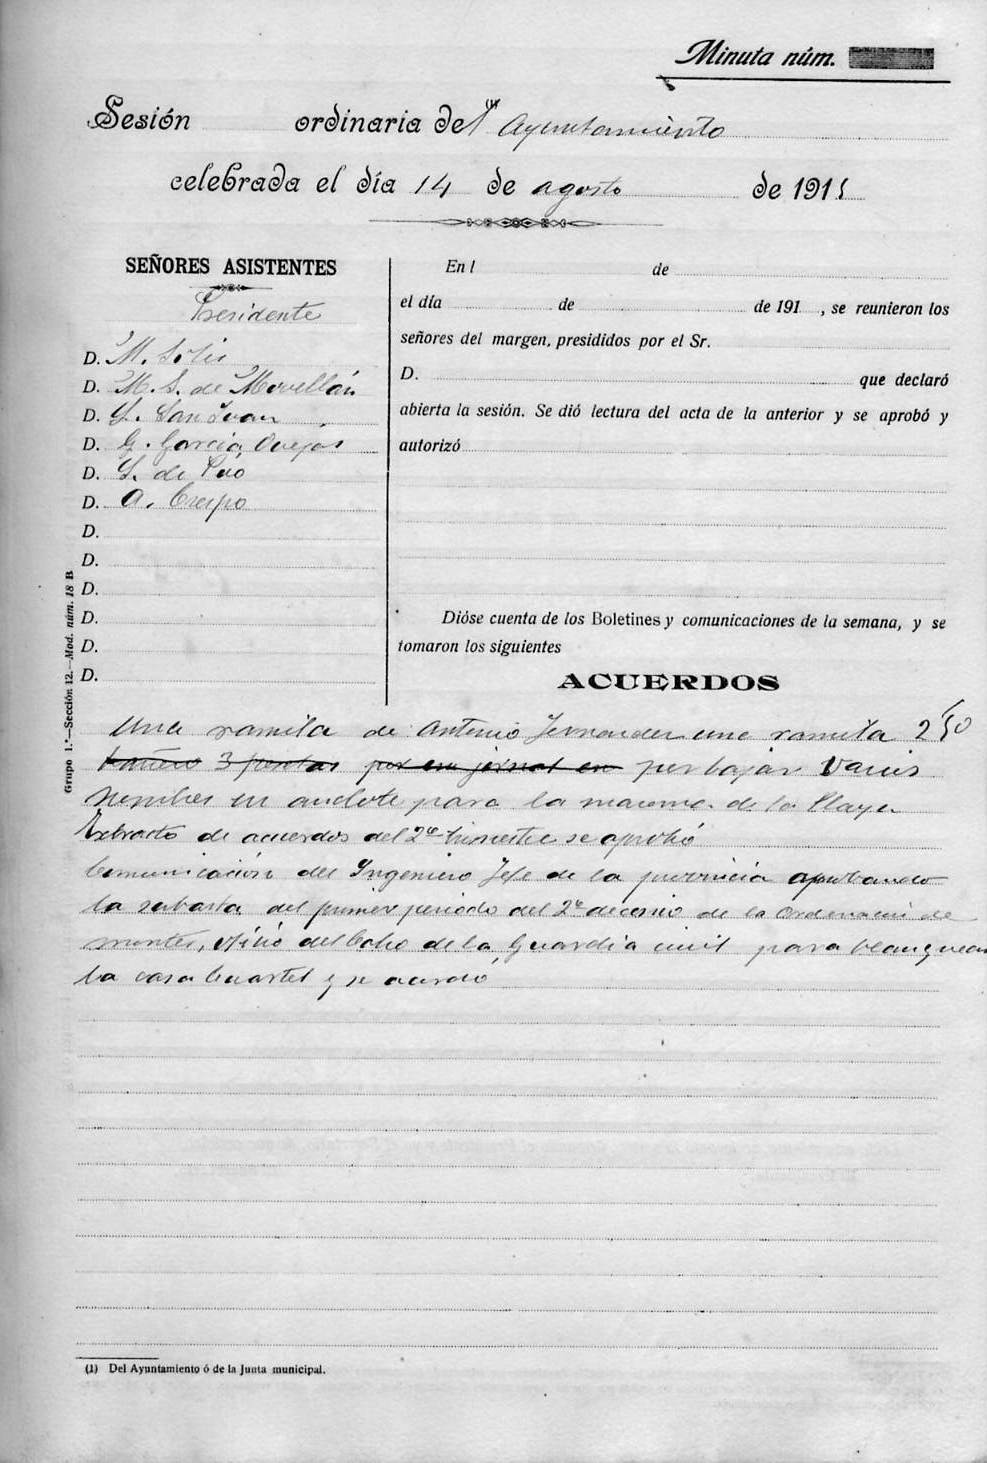 Minuta núm.
Sesión ordinaria del (1) Ayuntamiento
celebrada el día 14 de agosto de 1911
SEÑORES ASISTENTES
Presidente
D. M. Solis
D. M. S. de Movellán
D. Y. San Juan
D. G. Garcia Ovejas
D. Y. de Puo
D. A. Crespo
D.
D.
D.
D.
D.
D.
Grupo 1.º—Sección 12.—Mod. núm. 18 B
En l de
el día de de 191 , se reunieron los
señores del margen, presididos por el Sr.
D. que declaró
abierta la sesión. Se dió lectura del acta de la anterior y se aprobó y
autorizó
Dióse cuenta de los Boletines y comunicaciones de la semana, y se
tomaron los siguientes
ACUERDOS
Una ramila de Antonio Fernandez una ramila 2'50
3 pesetas por un jornal en por bajar varios
en para la de la Playa
Extracto de acuerdos del 2º trimestre se aprobó
Comunicación del Ingeniero Jefe de la provincia aprobando
la subasta del primer periodo del 2º decenio de la Ordenación de
montes, Ofició del Cabo de la Guardia civil para blanquear
la casa Cuartel y se acordó
(1) Del Ayuntamiento ó de la Junta municipal.